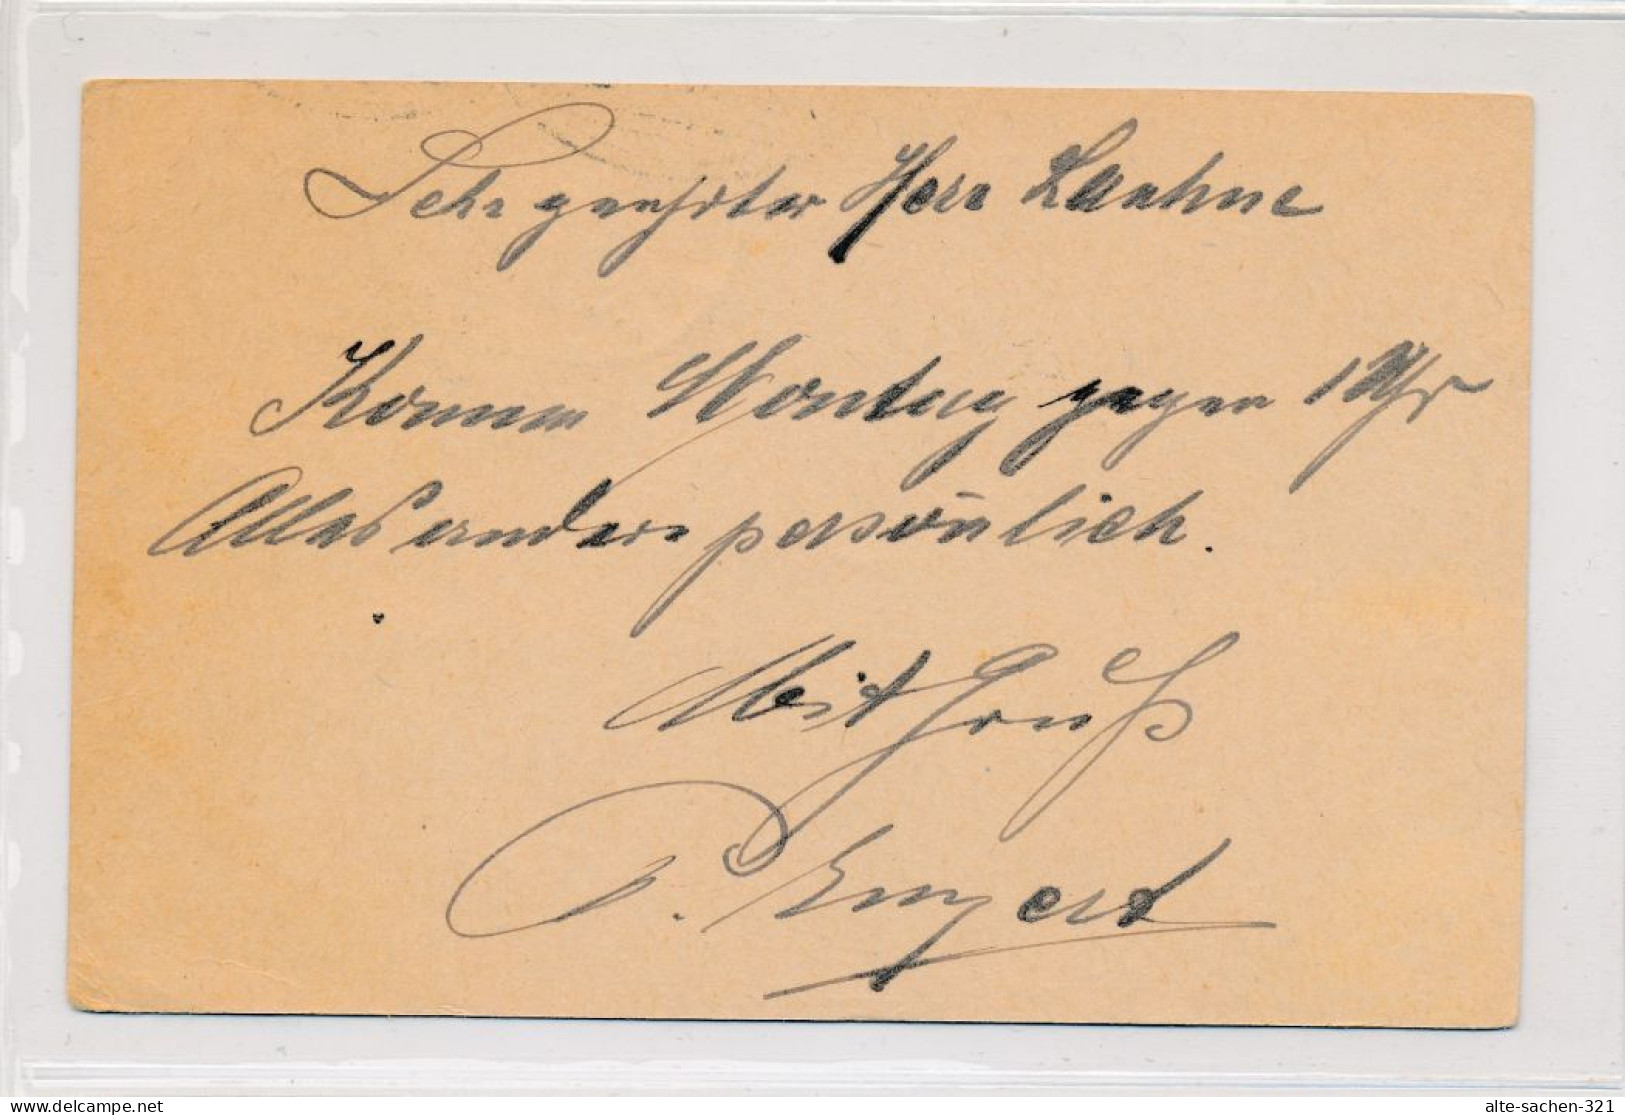 Sehr geehrter Herr Laehne
Komme Montag gegen 1 Uhr
Alles andere persönlich.
Mit Gruß
P. Engert
delcampe.net
alte-sachen-321